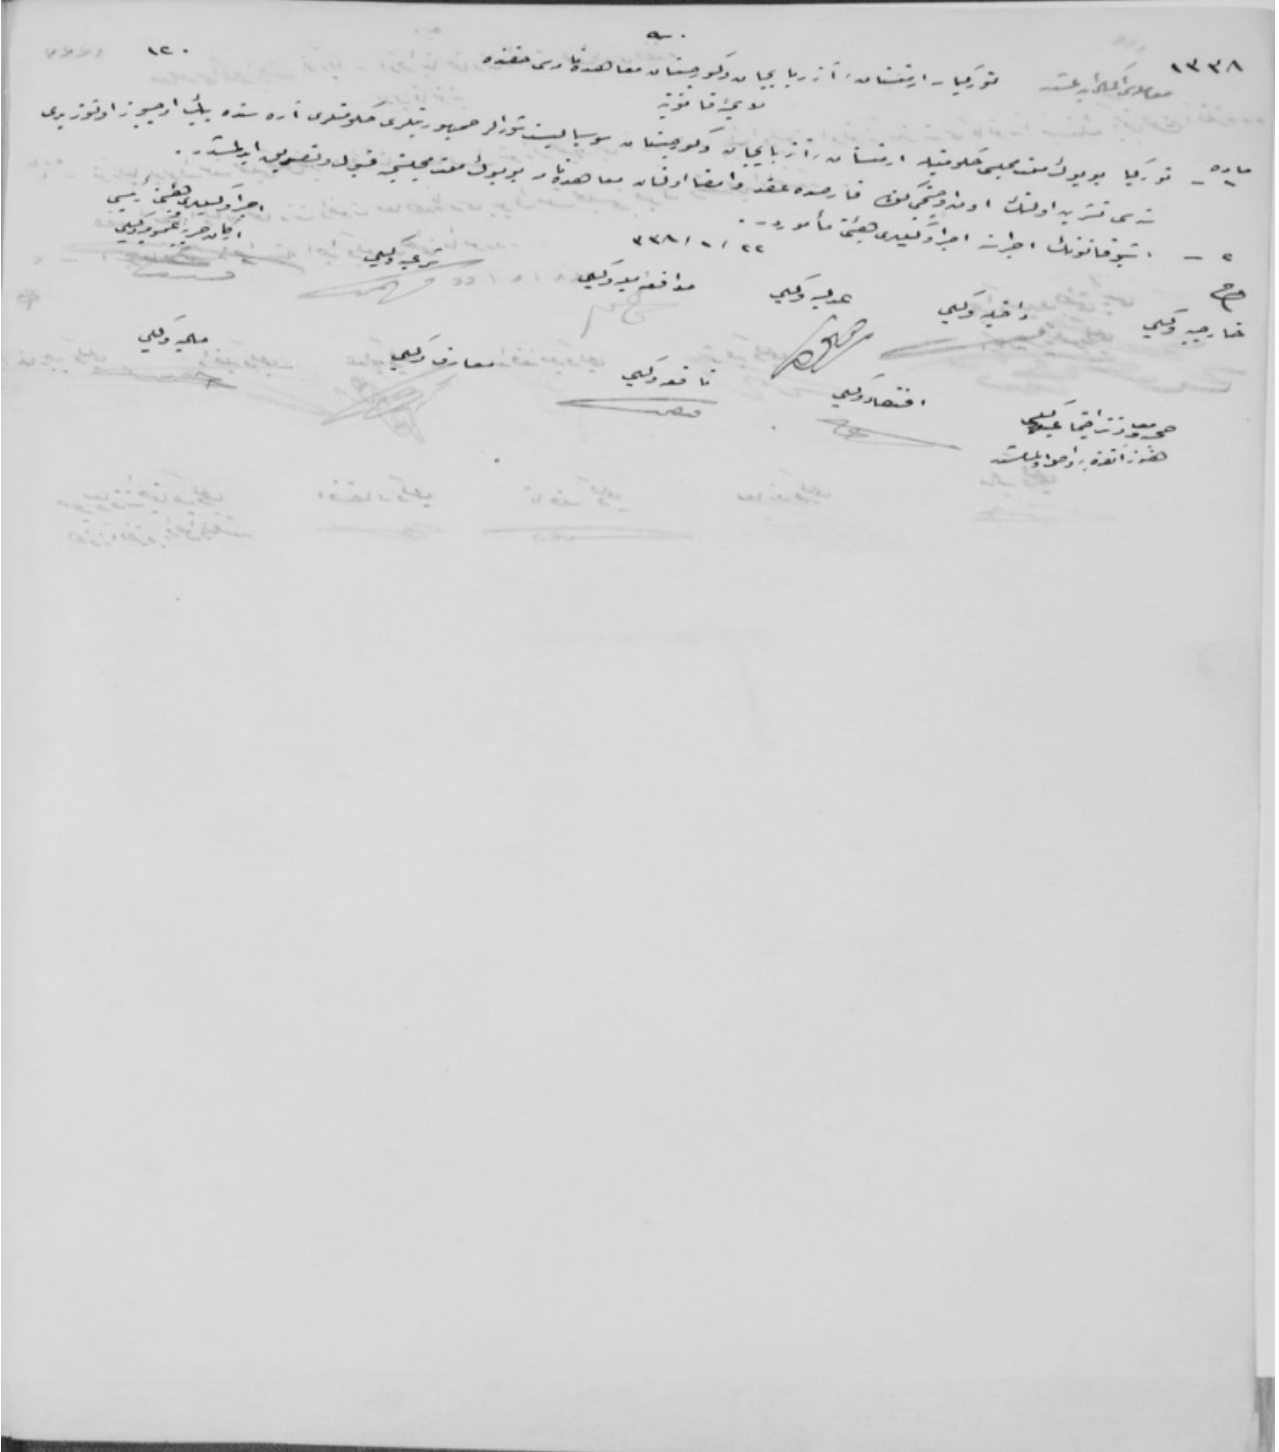 ٩٠
١٣٣٨
١٢٠
توركيا، ارمنستان، آذربايجان وكورجستان معاهده‌نامه‌سى حقنده
لايحۀ قانونيه
ماده ١ – توركيا بويوك ملت مجلسى حكومتيله ارمنستان، آذربايجان وكورجستان سوسياليست شورالر جمهوريتلرى حكومتلرى آره‌سنده بيك اوچيوز اوتوز يدى
سنه‌سى تشرين اولنك اون اوچنجى كونى قارصده عقد وامضا اولنان معاهده‌نامه بويوك ملت مجلسنجه قبول وتصديق ايدلمشدر.
٢ – اشبو قانونك اجراسنه اجرا وكيللرى هيئتى مأموردر.
٢٢ / ١ / ٣٣٨
اجرا وكيللرى هيئتى رئيسى
اركان حربيۀ عموميه وكيلى
شرعيه وكيلى
مدافعۀ مليه وكيلى
عدليه وكيلى
داخليه وكيلى
خارجيه وكيلى
ماليه وكيلى
معارف وكيلى
نافعه وكيلى
اقتصاد وكيلى
صحيه ومعاونت اجتماعيه وكيلى